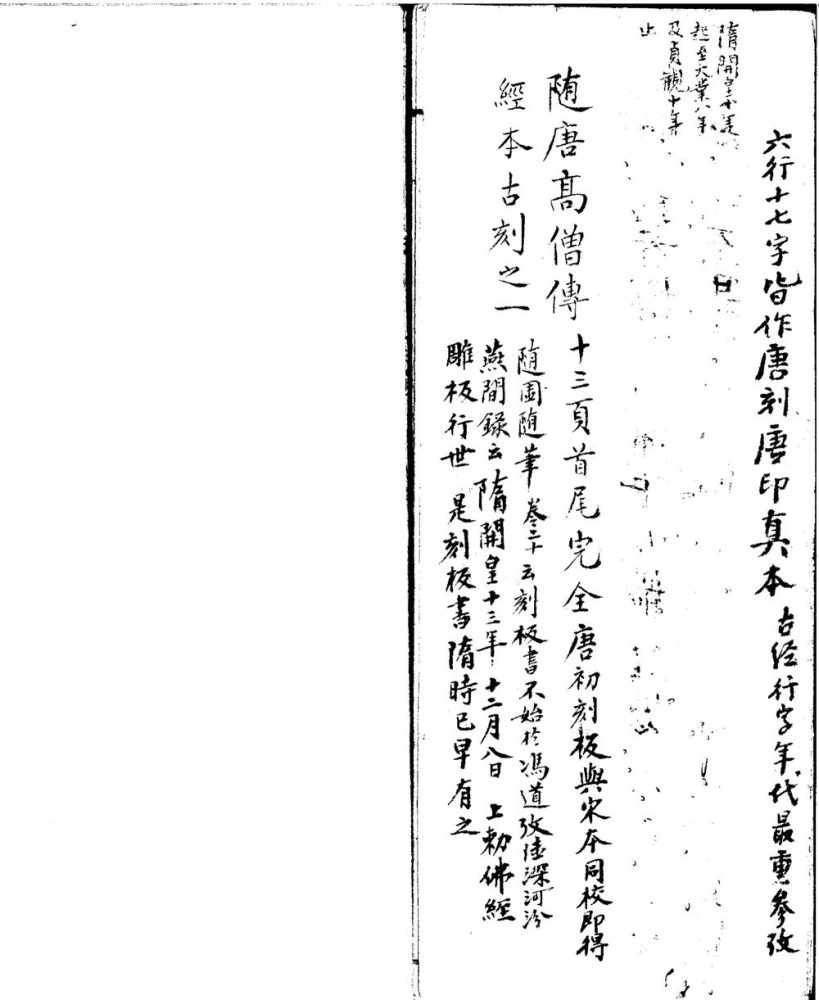 六行十七字皆作唐刻唐印真本 古经行字年代最重參攷
隋開皇十年
起至大業八年
及貞觀十年
止
随唐髙僧傳 十三頁首尾完全唐初刻板與宋本同校即得
經本古刻之一
随園随筆 卷二十云刻板書不始於馮道攷陸深河汾
燕間錄云隋開皇十三年十二月八日 上勅佛經
雕板行世 是刻板書隋時已早有之